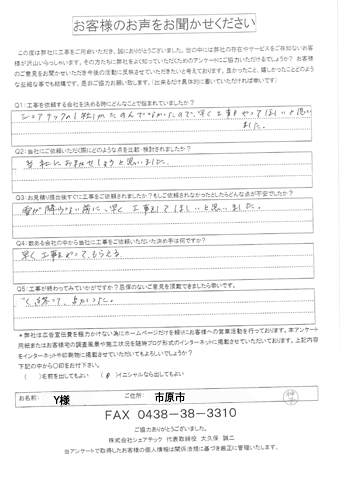 お客様のお声をお聞かせください
この度は弊社に工事をご用命いただき、誠にありがとうございました。世の中には弊社の存在やサービスをご存知ないお客
様が沢山いらっしゃいます。その方たちに弊社をよく知っていただくためのアンケートにご協力いただけるでしょうか？ お客様
のご意見をお聞かせいただき今後の活動に反映させていただきたいと考えております。良かったこと、嬉しかったことどのよう
な些細な事でも結構です。是非ご協力お願い致します。（出来るだけ具体的に書いていただければ幸いです）
Q1：工事を依頼する会社を決める時にどんなことで悩まれていましたか？
早く工事をやってほしいと思い
ました。
Q2：当社にご依頼いただく際にどのような点を比較・検討されましたか？
貴社におまかせしようと思いました。
Q3：お見積り提出後すぐに工事をご依頼されましたか？もしご依頼されなかったとしたらどんな点が不安でしたか？
雪が降らない前に、早く工事をしてほしいと思いました。
Q4：数ある会社の中から当社に工事をご依頼いただいた決め手は何ですか？
早く工事をやってもらえる。
Q5：工事が終わってみていかがですか？忌憚のないご意見を頂戴できましたら幸いです。
良かった。
＊弊社は広告宣伝費を極力かけない為にホームページだけを頼りにお客様への営業活動を行っております。本アンケート
用紙またはお客様宅の調査風景や施工状況を随時ブログ形式のインターネットに掲載させていただいております。上記内容
をインターネットや印刷物に掲載させていただいてもよろしいでしょうか？
下記の中から〇印をお付け下さい。
（　）名前を出してもよい　（　）イニシャルなら出してもよい
お名前： Y様　ご住所： 市原市
FAX 0438-38-3310
ご協力ありがとうございました。
株式会社シェアテック 代表取締役 大久保 誠二
当アンケートで取得したお客様の個人情報は関係法規に基づき厳正に管理いたします。